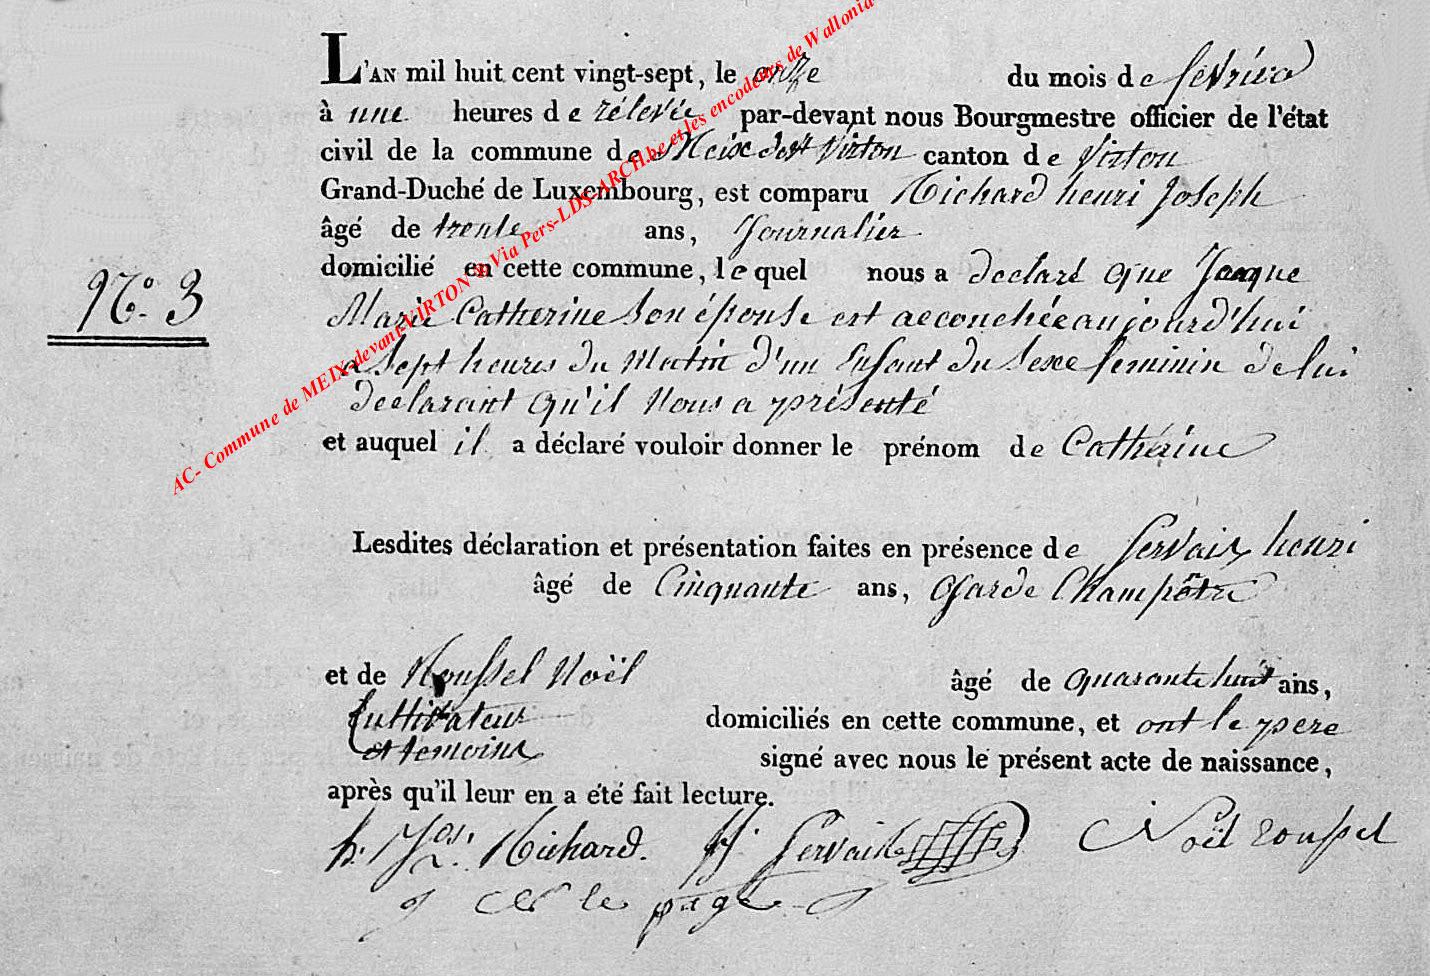 L'AN mil huit cent vingt-sept, le onze du mois de février
à une heures de rélevée par-devant nous Bourgmestre officier de l'état
civil de la commune de Meix devt Virton canton de Virton
Grand-Duché de Luxembourg, est comparu Richard henri Joseph
âgé de trente ans, Journalier
domicilié en cette commune, lequel nous a declaré que Jacque
N.o 3
Marie Catherine Son épouse est accouchée aujourd'hui
a Sept heures du Matin d'un Enfant du Sexe feminin de lui
declarant qu'il Nous a présenté
et auquel il a déclaré vouloir donner le prénom de Catherine
Lesdites déclaration et présentation faites en présence de Servais henri
âgé de Cinquante ans, Garde Champêtre
et de Roussel Noël âgé de quarante huit ans,
Cultivateur domiciliés en cette commune, et ont le pere
et temoins signé avec nous le présent acte de naissance,
après qu'il leur en a été fait lecture.
h. Jos. Richard. H. Servais Noël roussel
le page
AC- Commune de MEIX-devant-VIRTON % Via Pers-LDS-ARCH.be et les encodeurs de Wallonia